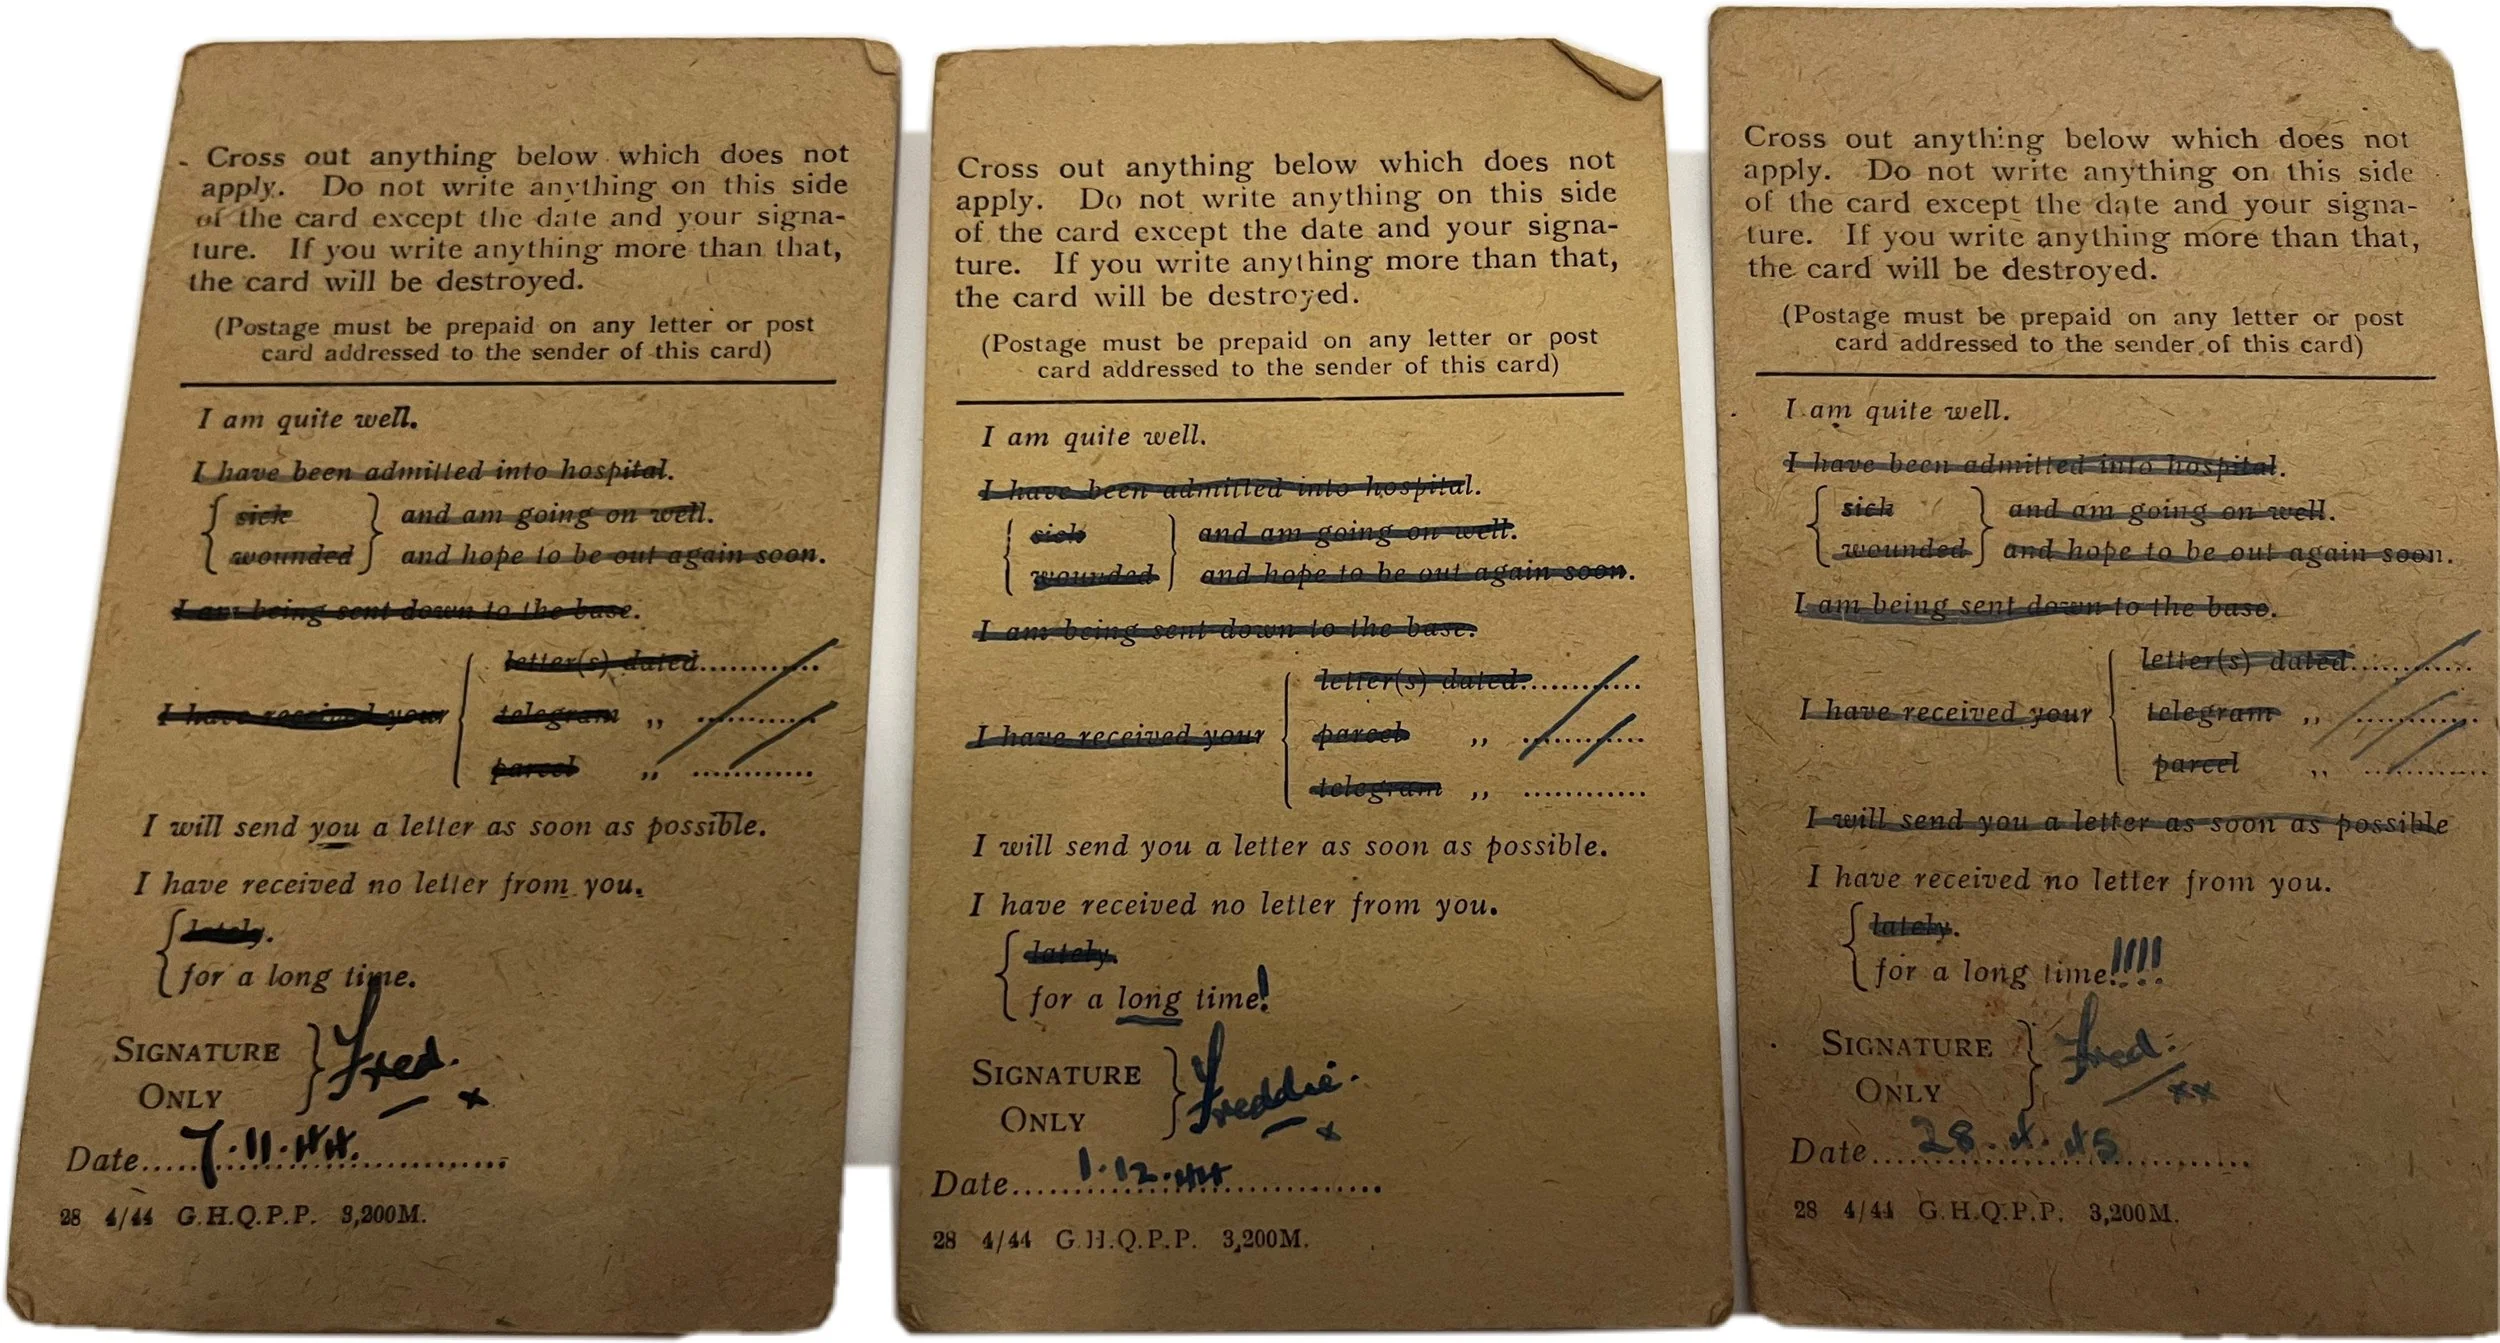 Cross out anything below which does not
apply. Do not write anything on this side
of the card except the date and your signa-
ture. If you write anything more than that,
the card will be destroyed.
(Postage must be prepaid on any letter or post
card addressed to the sender of this card)
I am quite well.
I have been admitted into hospital.
sick and am going on well.
wounded and hope to be out again soon.
I am being sent down to the base.
letter(s) dated............
I have received your telegram ,, ............
parcel ,, ............
I will send you a letter as soon as possible.
I have received no letter from you.
lately.
for a long time.
SIGNATURE Fred.
ONLY x
Date 7.11.44.
28 4/44 G.H.Q.P.P. 3,200M.
Cross out anything below which does not
apply. Do not write anything on this side
of the card except the date and your signa-
ture. If you write anything more than that,
the card will be destroyed.
(Postage must be prepaid on any letter or post
card addressed to the sender of this card)
I am quite well.
I have been admitted into hospital.
sick and am going on well.
wounded and hope to be out again soon.
I am being sent down to the base.
letter(s) dated............
I have received your parcel ,, ............
telegram ,, ............
I will send you a letter as soon as possible.
I have received no letter from you.
lately.
for a long time!
SIGNATURE Freddie.
ONLY x
Date 1.12.44
28 4/44 G.H.Q.P.P. 3,200M.
Cross out anything below which does not
apply. Do not write anything on this side
of the card except the date and your signa-
ture. If you write anything more than that,
the card will be destroyed.
(Postage must be prepaid on any letter or post
card addressed to the sender of this card)
I am quite well.
I have been admitted into hospital.
sick and am going on well.
wounded and hope to be out again soon.
I am being sent down to the base.
letter(s) dated............
I have received your telegram ,, ............
parcel ,, ............
I will send you a letter as soon as possible
I have received no letter from you.
lately.
for a long time!!!!
SIGNATURE Fred.
ONLY xx
Date 28.4.45
28 4/44 G.H.Q.P.P. 3,200M.